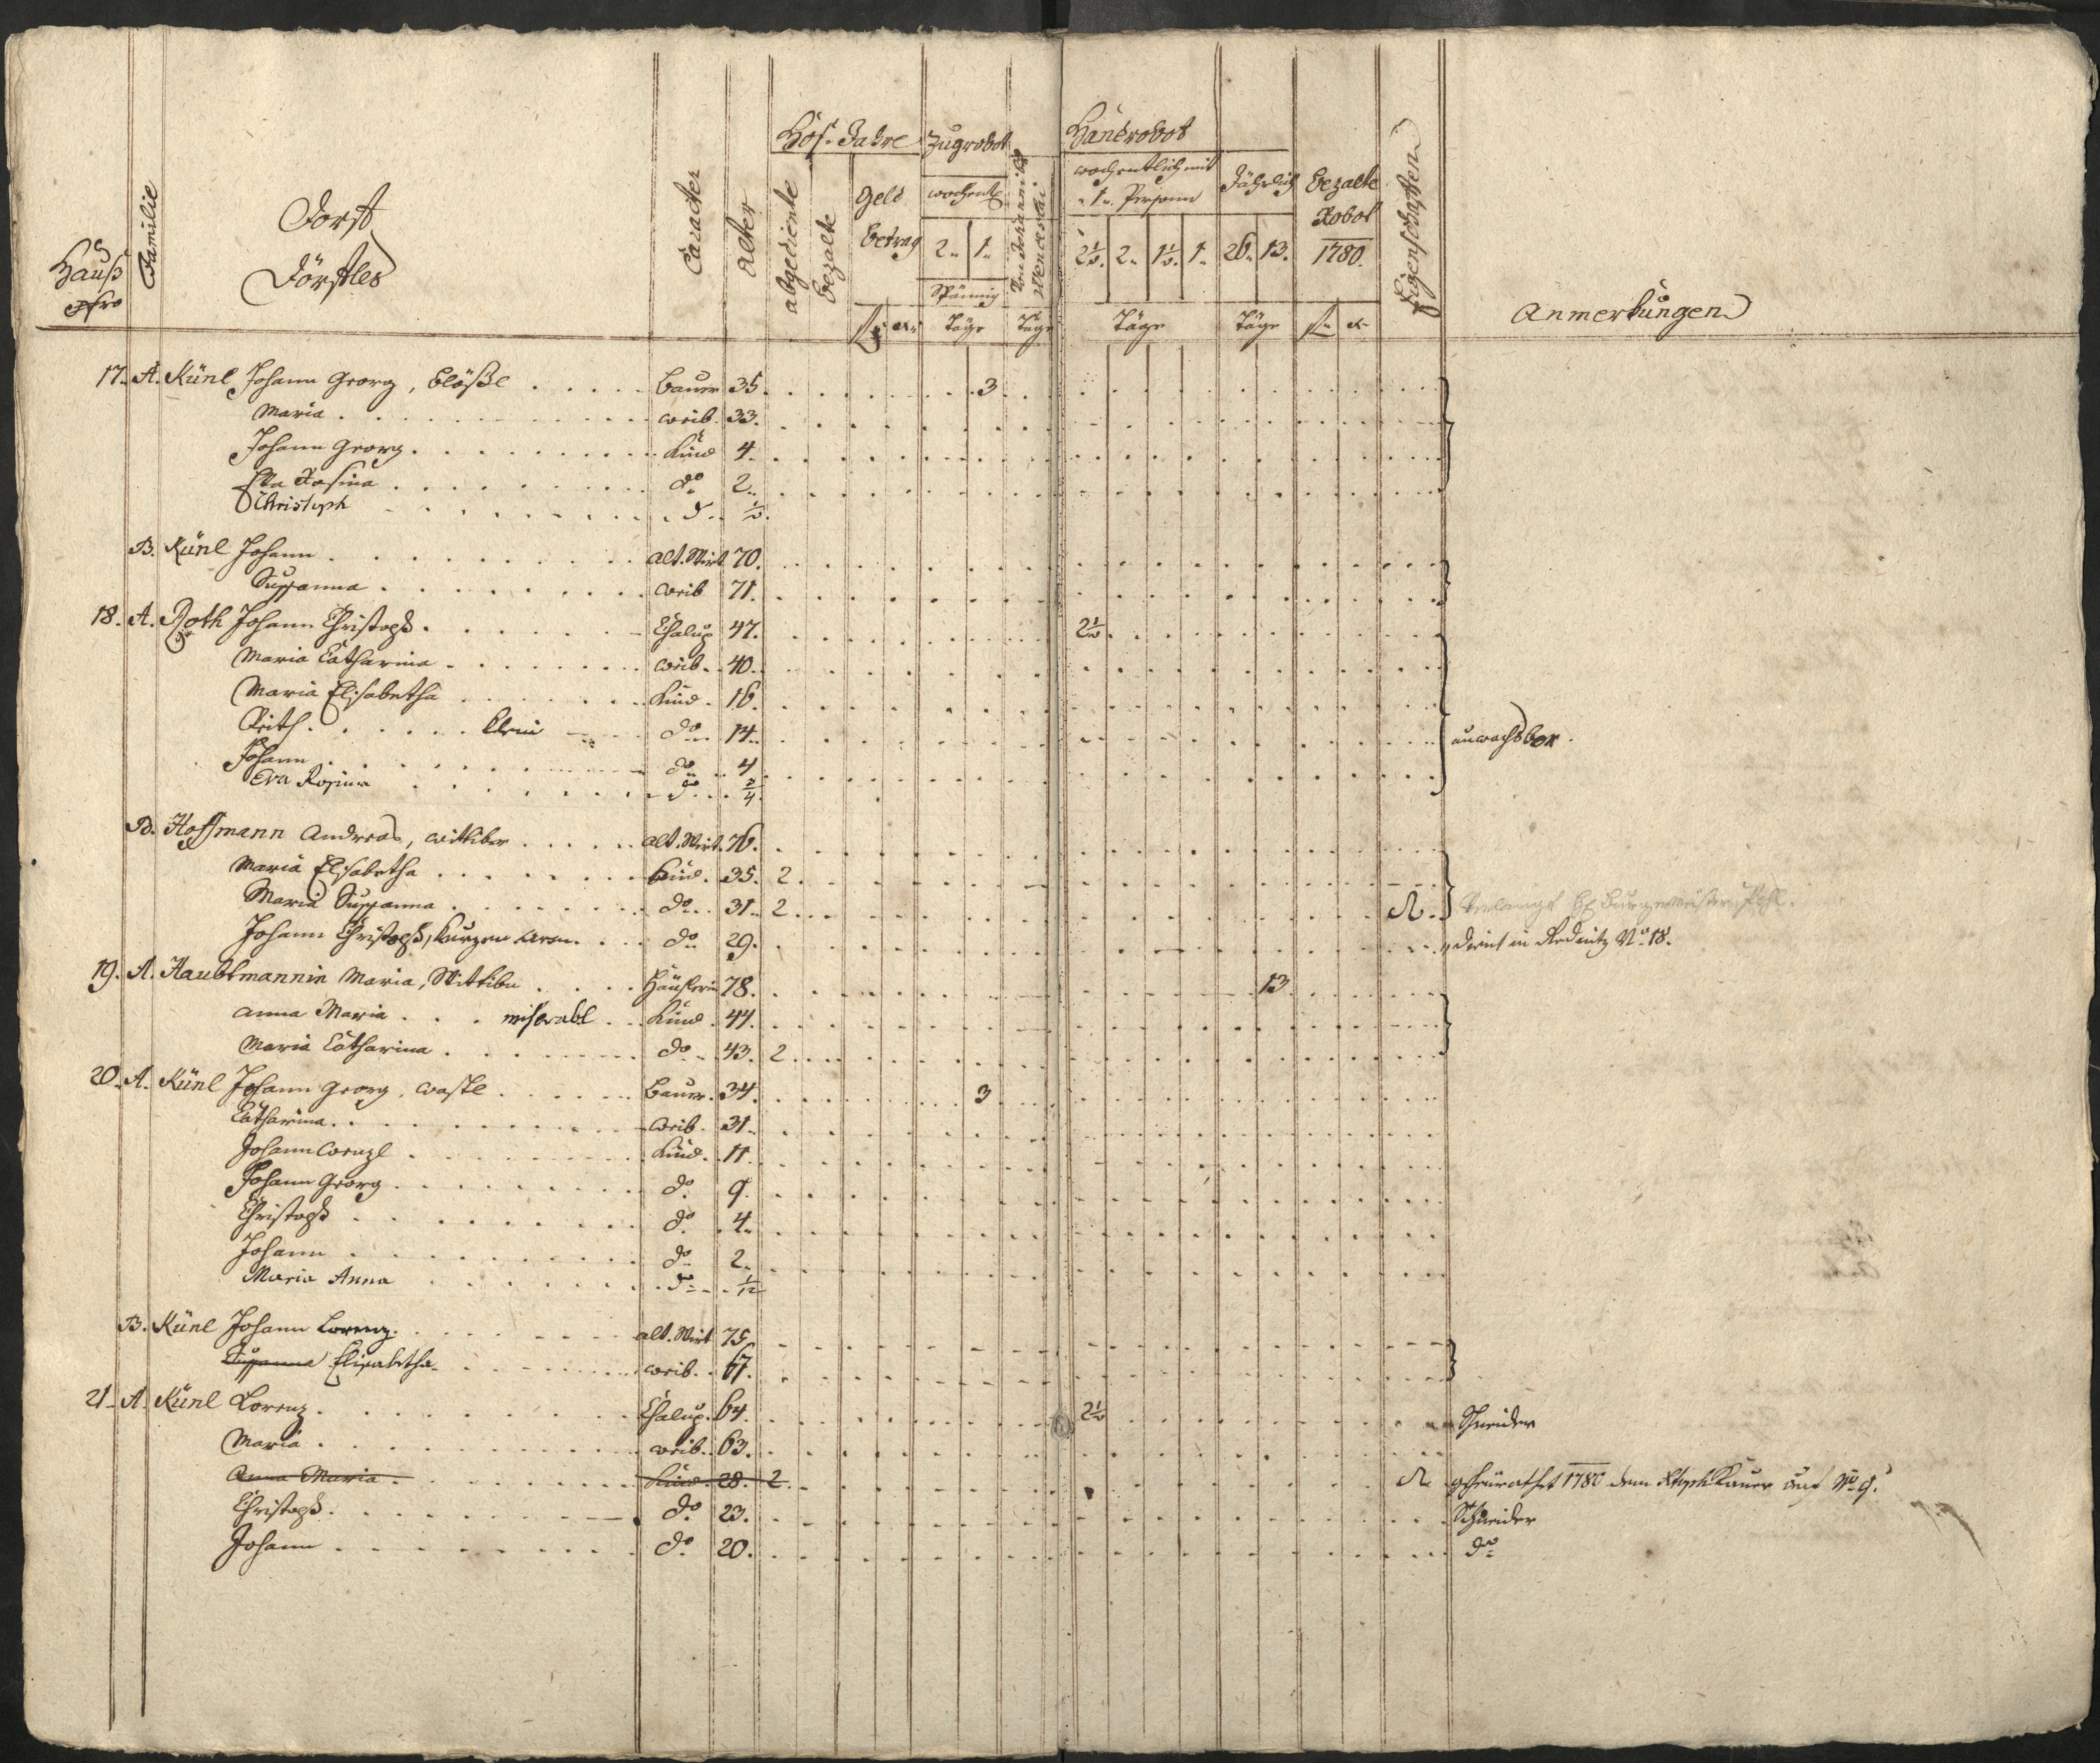 Hauß Nro
Familie
Dorf Förstles
Caracter
Alter
Hof-Jahre
abgediente
bezalte
Geld betrag
f. x.
Zugrobot
wochentl.
2. 1.
Spännig
Täge
Von Johanni bis Wenceslai
Täge
Handrobot
wochentlich mit
1. Person
2½. 2. 1½. 1.
Täge
Jährlich
26. 13.
Täge
bezalte Robot 1780.
f. x.
Eigenschaften
Anmerkungen
17. A. Künl Johann Georg, blößl Bauer 35. 3
Maria weib. 33.
Johann Georg Kind 4.
Eva Rosina do 2.
Christoph do ½.
B. Künl Johann alt. Wirt 70.
Susanna weib 71.
18. A. Roth Johann Christoph Chalup 47. 2½
Maria Catharina weib. 40.
Maria Elisabetha Kind. 16.
klein do 14. unwachsbar.
Johann do 4
Eva Rosina do ¾.
B. Hoffmann Andreas, wittiber alt. Wirt. 76.
Maria Elisabetha Kind. 35. 2.
Maria Susanna do 31. 2. Verlangt H. Burgermeister Pohl.
Johann Christoph, kurzen Arm do 29. dient in Rednitz No 18.
19. A. Haubtmannin Maria, Wittibn Häuslerin 78. 13
Anna Maria miserabl Kind. 44.
Maria Catharina do 43. 2.
20. A. Künl Johann Georg, wastl Bauer. 34. 3
Catharina weib. 31.
Johann Wenzl Kind. 11.
Johann Georg do 9.
Christoph do 4.
Johann do 2.
Maria Anna do 1/12
B. Künl Johann Lorenz alt. Wirt 75.
Susanna Elisabetha weib. 67.
21. A. Künl Lorenz Chalup. 64. 2½ Schneider
Maria weib. 63.
Anna Maria Kind. 28. 2. geheurathet 1780 dem Xtoph Kauer auf No 9.
Christoph do 23. Schneider
Johann do 20. do